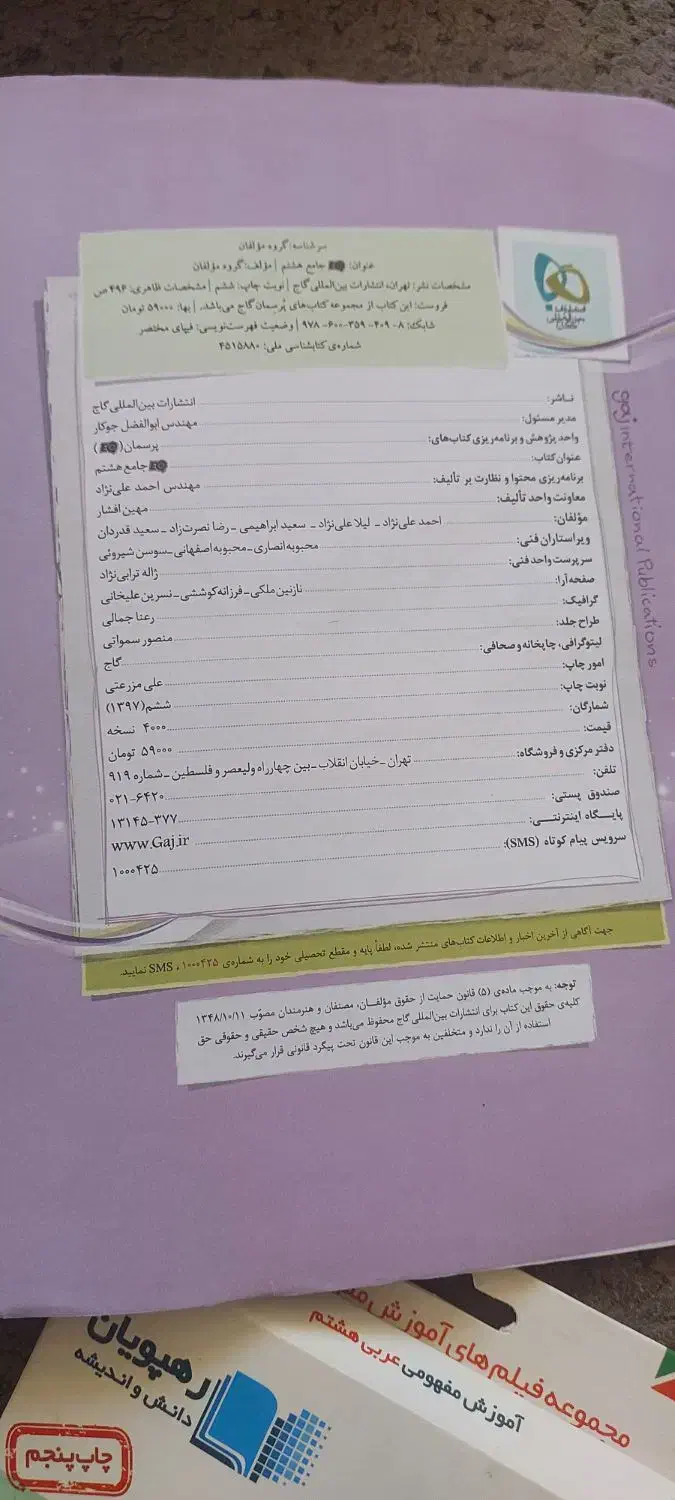 سرشناسه: گروه مؤلفان
عنوان: EQ جامع هشتم | مؤلف: گروه مؤلفان
مشخصات نشر: تهران، انتشارات بین‌المللی گاج | نوبت چاپ: ششم | مشخصات ظاهری: ۴۹۶ ص
فروست: این کتاب از مجموعه کتاب‌های پُرسمان گاج می‌باشد. | بها: ۵۹۰۰۰ تومان
شابک: ۸-۴۰۹-۳۵۹-۶۰۰-۹۷۸ | وضعیت فهرست‌نویسی: فیپای مختصر
شماره‌ی کتابشناسی ملی: ۴۵۱۵۸۸۰
ناشر: انتشارات بین‌المللی گاج
مدیر مسئول: مهندس ابوالفضل جوکار
واحد پژوهش و برنامه‌ریزی کتاب‌های: پرسمان (EQ)
عنوان کتاب: EQ جامع هشتم
برنامه‌ریزی محتوا و نظارت بر تألیف: مهندس احمد علی‌نژاد
معاونت واحد تألیف: مهین افشار
مؤلفان: احمد علی‌نژاد - لیلا علی‌نژاد - سعید ابراهیمی - رضا نصرت‌زاد - سعید قدردان
ویراستاران فنی: محبوبه انصاری - محبوبه اصفهانی - سوسن شیروئی
سرپرست واحد فنی: ژاله ترابی‌نژاد
صفحه‌آرا: نازنین ملکی - فرزانه کوششی - نسرین علیخانی
گرافیک: رعنا جمالی
طراح جلد: منصور سمواتی
لیتوگرافی، چاپخانه و صحافی: گاج
امور چاپ: علی مزرعتی
نوبت چاپ: ششم (۱۳۹۷)
شمارگان: ۴۰۰۰ نسخه
قیمت: ۵۹۰۰۰ تومان
دفتر مرکزی و فروشگاه: تهران - خیابان انقلاب - بین چهارراه ولیعصر و فلسطین - شماره ۹۱۹
تلفن: ۰۲۱-۶۴۲۰
صندوق پستی: ۱۳۱۴۵-۳۷۷
پایگاه اینترنتی: www.Gaj.ir
سرویس پیام کوتاه (SMS): ۱۰۰۰۴۲۵
gaj international Publications
جهت آگاهی از آخرین اخبار و اطلاعات کتاب‌های منتشر شده، لطفاً پایه و مقطع تحصیلی خود را به شماره‌ی ۱۰۰۰۴۲۵، SMS نمایید.
توجه: به موجب ماده‌ی (۵) قانون حمایت از حقوق مؤلفان، مصنفان و هنرمندان مصوّب ۱۳۴۸/۱۰/۱۱
کلیه‌ی حقوق این کتاب برای انتشارات بین‌المللی گاج محفوظ می‌باشد و هیچ شخص حقیقی و حقوقی حق
استفاده از آن را ندارد و متخلفین به موجب این قانون تحت پیگرد قانونی قرار می‌گیرند.
مجموعه فیلم های آموزش
آموزش مفهومی عربی هشتم
رهپویان
دانش و اندیشه
چاپ پنجم